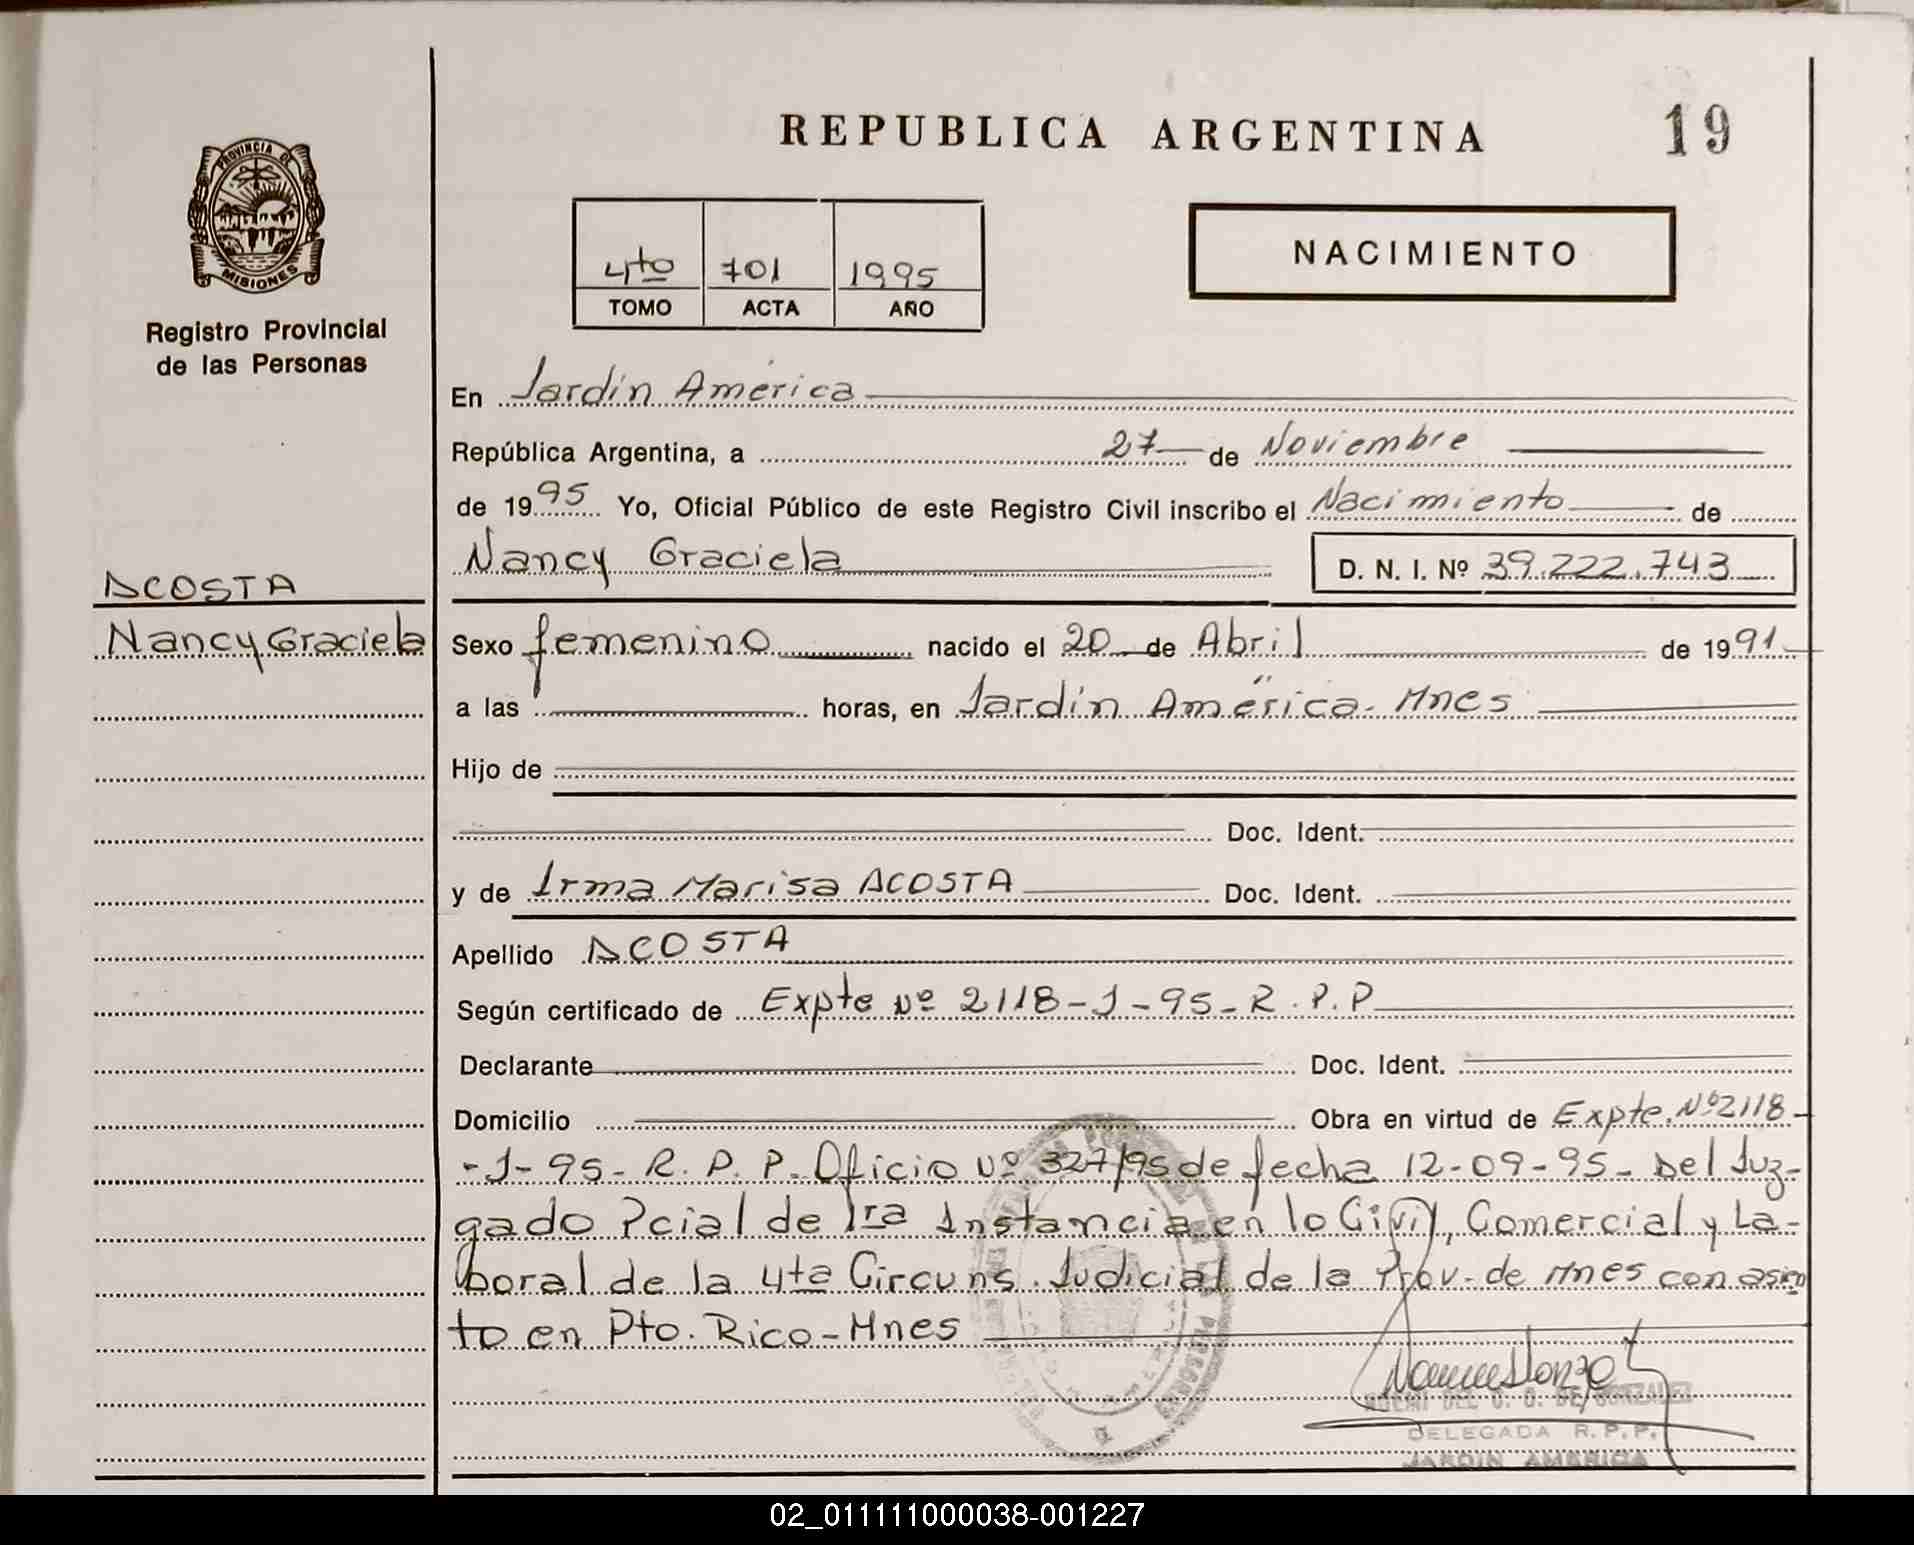 REPUBLICA ARGENTINA
19
PROVINCIA DE
MISIONES
Registro Provincial
de las Personas
4to 701 1995
TOMO ACTA AÑO
NACIMIENTO
En Jardín América
República Argentina, a 27 de Noviembre
de 1995 Yo, Oficial Público de este Registro Civil inscribo el Nacimiento de
Nancy Graciela D. N. I. Nº 39.222.743
ACOSTA
Nancy Graciela
Sexo femenino nacido el 20 de Abril de 1991
a las horas, en Jardín América - Mnes
Hijo de
Doc. Ident.
y de Irma Marisa ACOSTA Doc. Ident.
Apellido ACOSTA
Según certificado de Expte Nº 2118-J-95-R.P.P
Declarante Doc. Ident.
Domicilio Obra en virtud de Expte. Nº 2118-
-J-95-R.P.P. Oficio Nº 327/95 de fecha 12-09-95- Del Juz-
gado Pcial de 1ra Instancia en lo Civil, Comercial y La-
boral de la 4ta Circuns. Judicial de la Prov. de Mnes con asien
to en Pto. Rico-Mnes
DE GONZALEZ
DELEGADA R.P.P.
JARDIN AMERICA
02_011111000038-001227